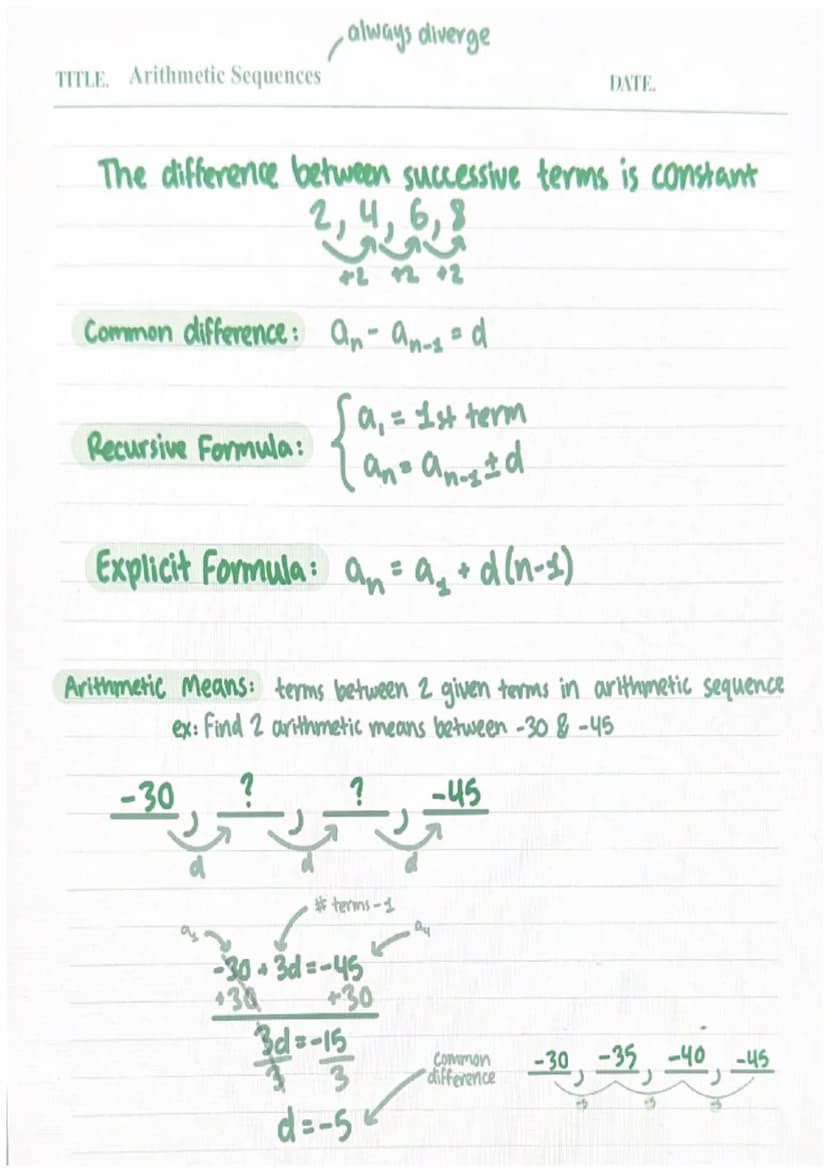 always diverge
TITLE. Arithmetic Sequences DATE.
The difference between successive terms is constant
2, 4, 6, 8
+2 +2 +2
Common difference: aₙ - aₙ₋₁ = d
Recursive Formula: { a₁ = 1st term
aₙ = aₙ₋₁ ± d
Explicit Formula: aₙ = a₁ + d(n-1)
Arithmetic Means: terms between 2 given terms in arithmetic sequence
ex: find 2 arithmetic means between -30 & -45
-30, ?, ?, -45
d d d
# terms-1
a₁ a₄
-30 + 3d = -45
+30 +30
3d = -15
3 3
common
difference
-30, -35, -40, -45
d = -5